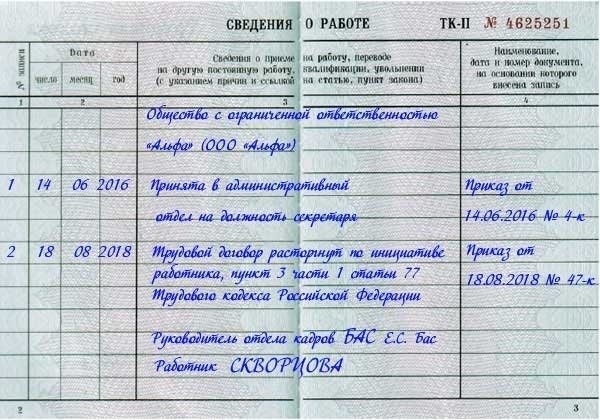 СВЕДЕНИЯ О РАБОТЕ ТК-II № 4625251
№ записи
Дата
число месяц год
Сведения о приеме на работу, переводе
на другую постоянную работу, квалификации, увольнении
(с указанием причин и ссылкой на статью, пункт закона)
Наименование,
дата и номер документа,
на основании которого
внесена запись
1 2 3 4
Общество с ограниченной ответственностью
«Альфа» (ООО «Альфа»)
1 14 06 2016 Принята в административный Приказ от
отдел на должность секретаря 14.06.2016 № 4-к
2 18 08 2018 Трудовой договор расторгнут по инициативе Приказ от
работника, пункт 3 части 1 статьи 77 18.08.2018 № 47-к
Трудового кодекса Российской Федерации
Руководитель отдела кадров БАС Е.С. Бас
Работник СКВОРЦОВА
2 3